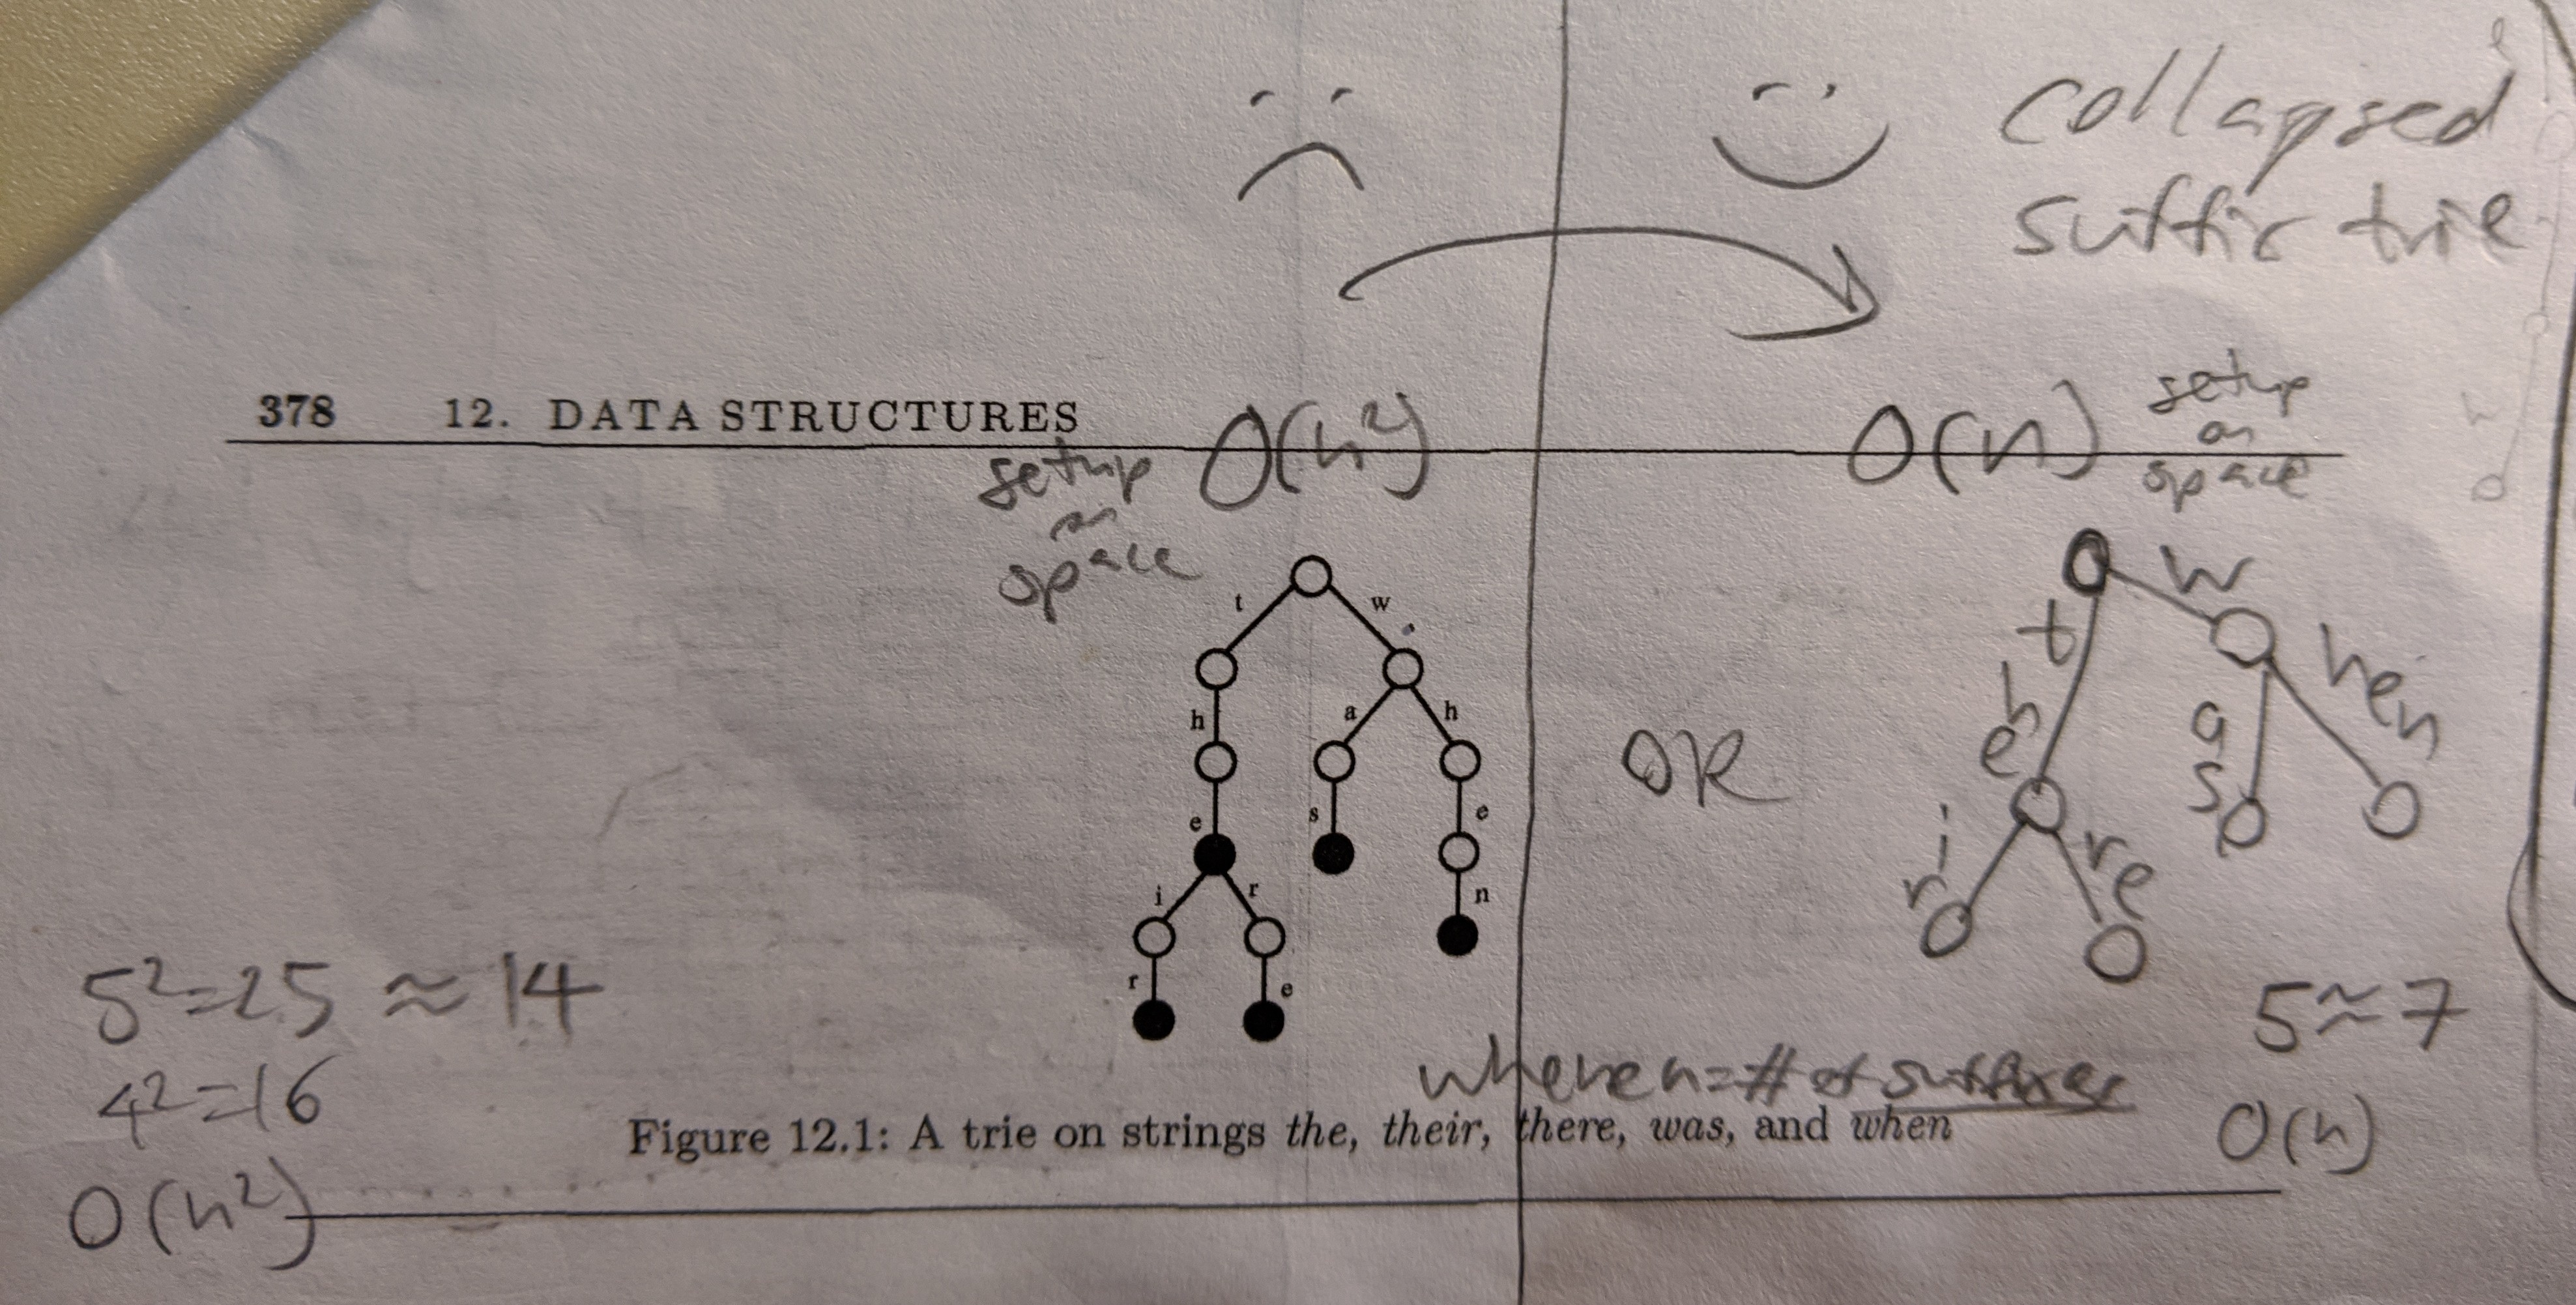 collapsed
suffix trie
378 12. DATA STRUCTURES
O(n²)
setup
or
space
O(n)
setup
or
space
t
w
h
a
h
e
s
e
i
r
n
r
e
OR
w
t
h
e
a
s
hen
i
r
re
5²=25 ≈ 14
4²=16
O(n²)
5≈7
O(n)
where n=# of suffixes
Figure 12.1: A trie on strings the, their, there, was, and when